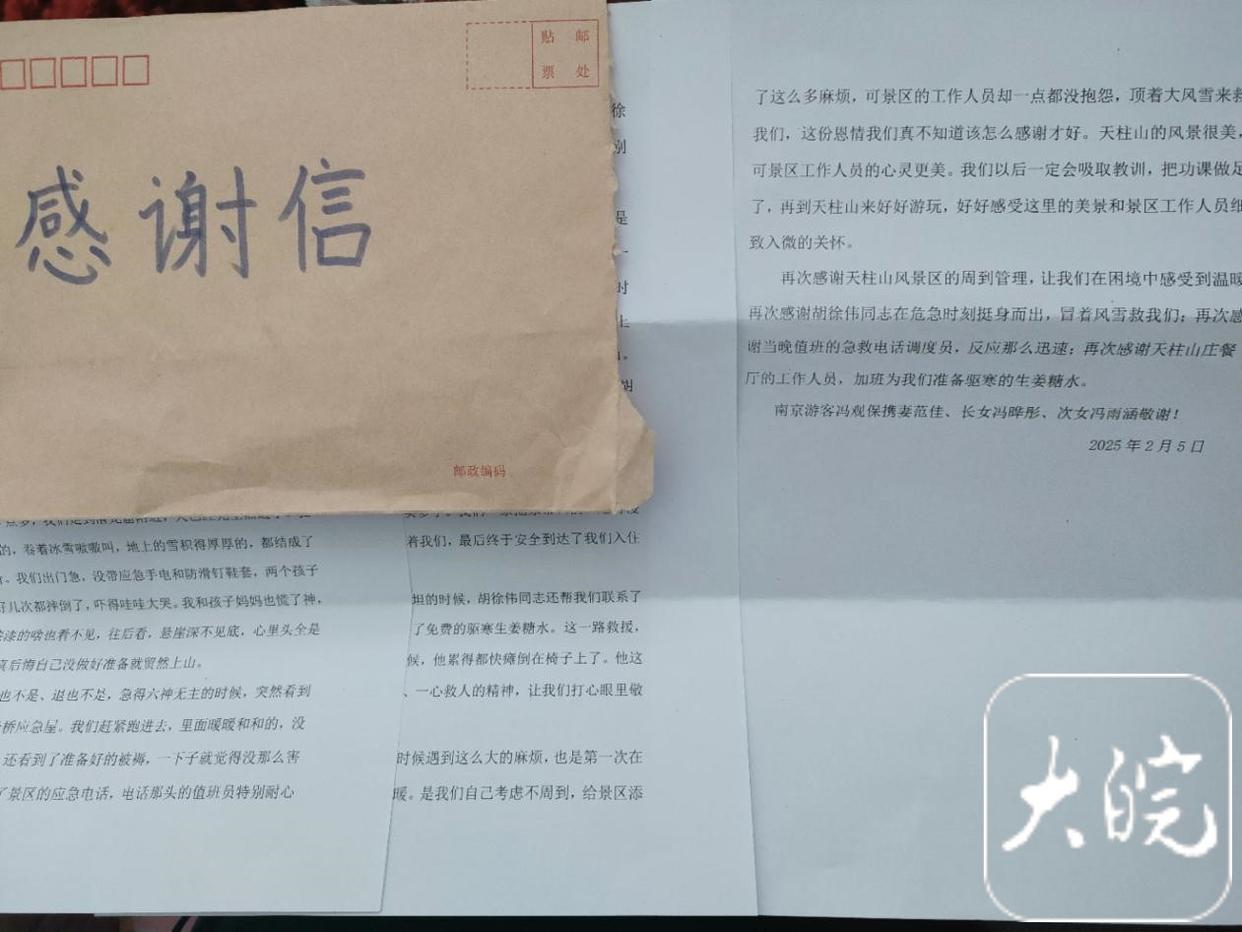 贴 邮
票 处
感谢信
邮政编码
徐
别
是
时
上
的，卷着冰雪嗷嗷叫，地上的雪积得厚厚的，都结成了
。我们出门急，没带应急手电和防滑钉鞋套，两个孩子
好几次都摔倒了，吓得哇哇大哭。我和孩子妈妈也慌了神，
漆的啥也看不见，往后看，悬崖深不见底，心里头全是
真后悔自己没做好准备就贸然上山。
也不是、退也不是，急得六神无主的时候，突然看到
桥应急屋。我们赶紧跑进去，里面暖暖和和的，没
还看到了准备好的被褥，一下子就觉得没那么害
了景区的应急电话，电话那头的值班员特别耐心
着我们，最后终于安全到达了我们入住
坦的时候，胡徐伟同志还帮我们联系了
了免费的驱寒生姜糖水。这一路救援，
候，他累得都快瘫倒在椅子上了。他这
、一心救人的精神，让我们打心眼里敬
时候遇到这么大的麻烦，也是第一次在
暖。是我们自己考虑不周到，给景区添
了这么多麻烦，可景区的工作人员却一点都没抱怨，顶着大风雪来救
我们，这份恩情我们真不知道该怎么感谢才好。天柱山的风景很美，
可景区工作人员的心灵更美。我们以后一定会吸取教训，把功课做足
了，再到天柱山来好好游玩，好好感受这里的美景和景区工作人员细
致入微的关怀。
再次感谢天柱山风景区的周到管理，让我们在困境中感受到温暖
再次感谢胡徐伟同志在危急时刻挺身而出，冒着风雪救我们；再次感
谢当晚值班的急救电话调度员，反应那么迅速；再次感谢天柱山庄餐
厅的工作人员，加班为我们准备驱寒的生姜糖水。
南京游客冯观保携妻范佳、长女冯晔彤、次女冯雨涵敬谢！
2025 年 2 月 5 日
大皖